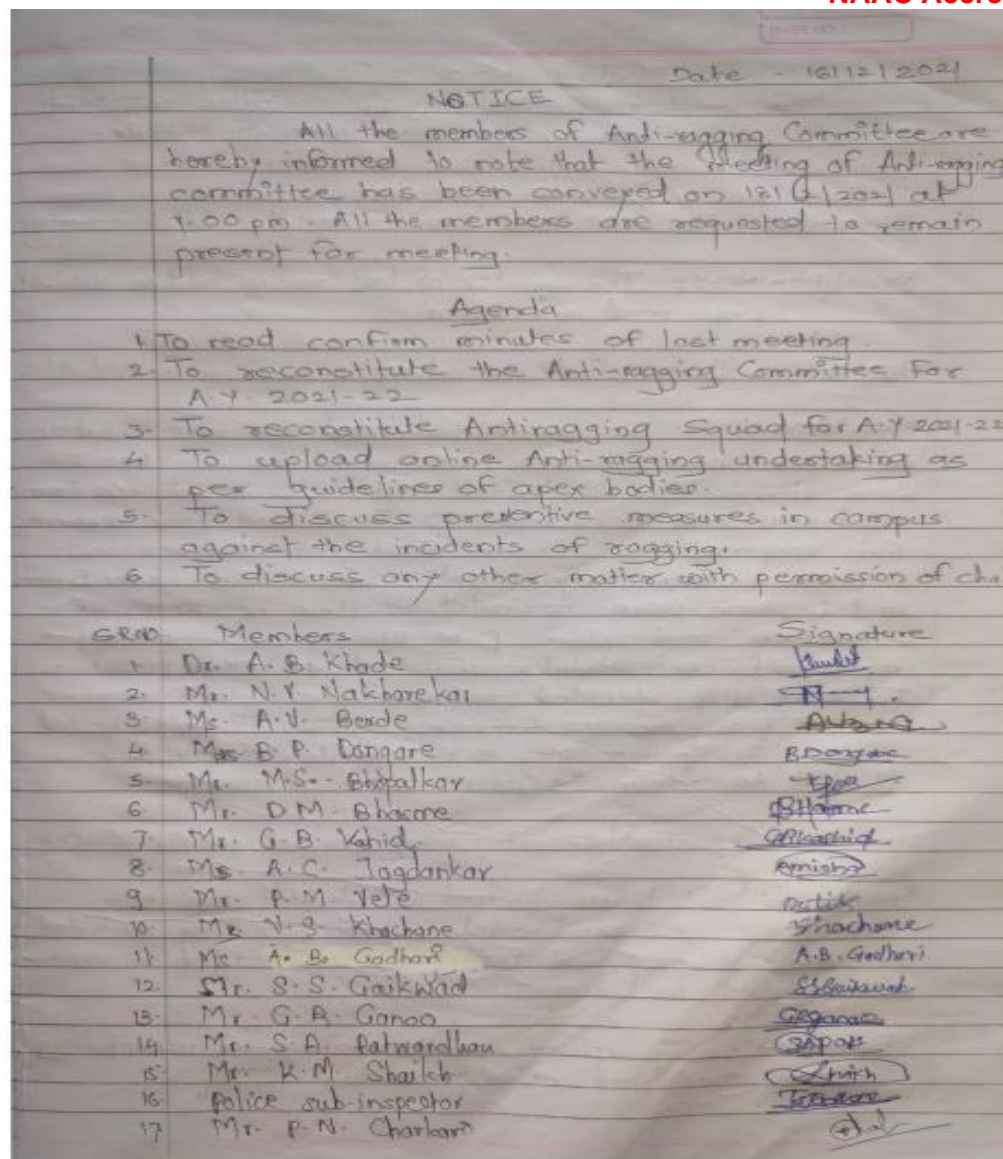 NAAC Accre
Date - 16/12/2021
NOTICE
All the members of Anti-ragging Committee are
hereby informed to note that the Meeting of Anti-ragging
committee has been conveyed on 18/12/2021 at
1.00 pm. All the members are requested to remain
present for meeting.
Agenda
1. To read confirm minutes of last meeting.
2. To reconstitute the Anti-ragging Committee For
A.Y. 2021-22
3. To reconstitute Antiragging Squad for A.Y 2021-22
4 To upload online Anti-ragging undertaking as
per guidelines of apex bodies.
5. To discuss preventive measures in campus
against the incidents of ragging.
6 To discuss any other matter with permission of cha
SRNO. Members Signature
1. Dr. A. B. Khade
2. Mr. N. V. Nakharekar
3. Ms. A.V. Berde
4. Mrs. B. P. Dongare BDongare
5. Mr. M.S. Bhopalkar
6 Mr. D M. Bhasme
7. Mr. G. B. Kahid
8. Ms. A. C. Jagdankar Amisha
9 Mr. P. M. Vele
10. V. S. Khachane Khachane
11 Ms A. B. Godhari A.B. Godhari
12. Mr. S. S. Gaikwad SSGaikawad
13. Mr. G. R. Ganoo
14. Mr. S. A. Patwardhan
15 Mr. K. M. Shaikh
16 Police sub-inspector
17 Mr. P. N.